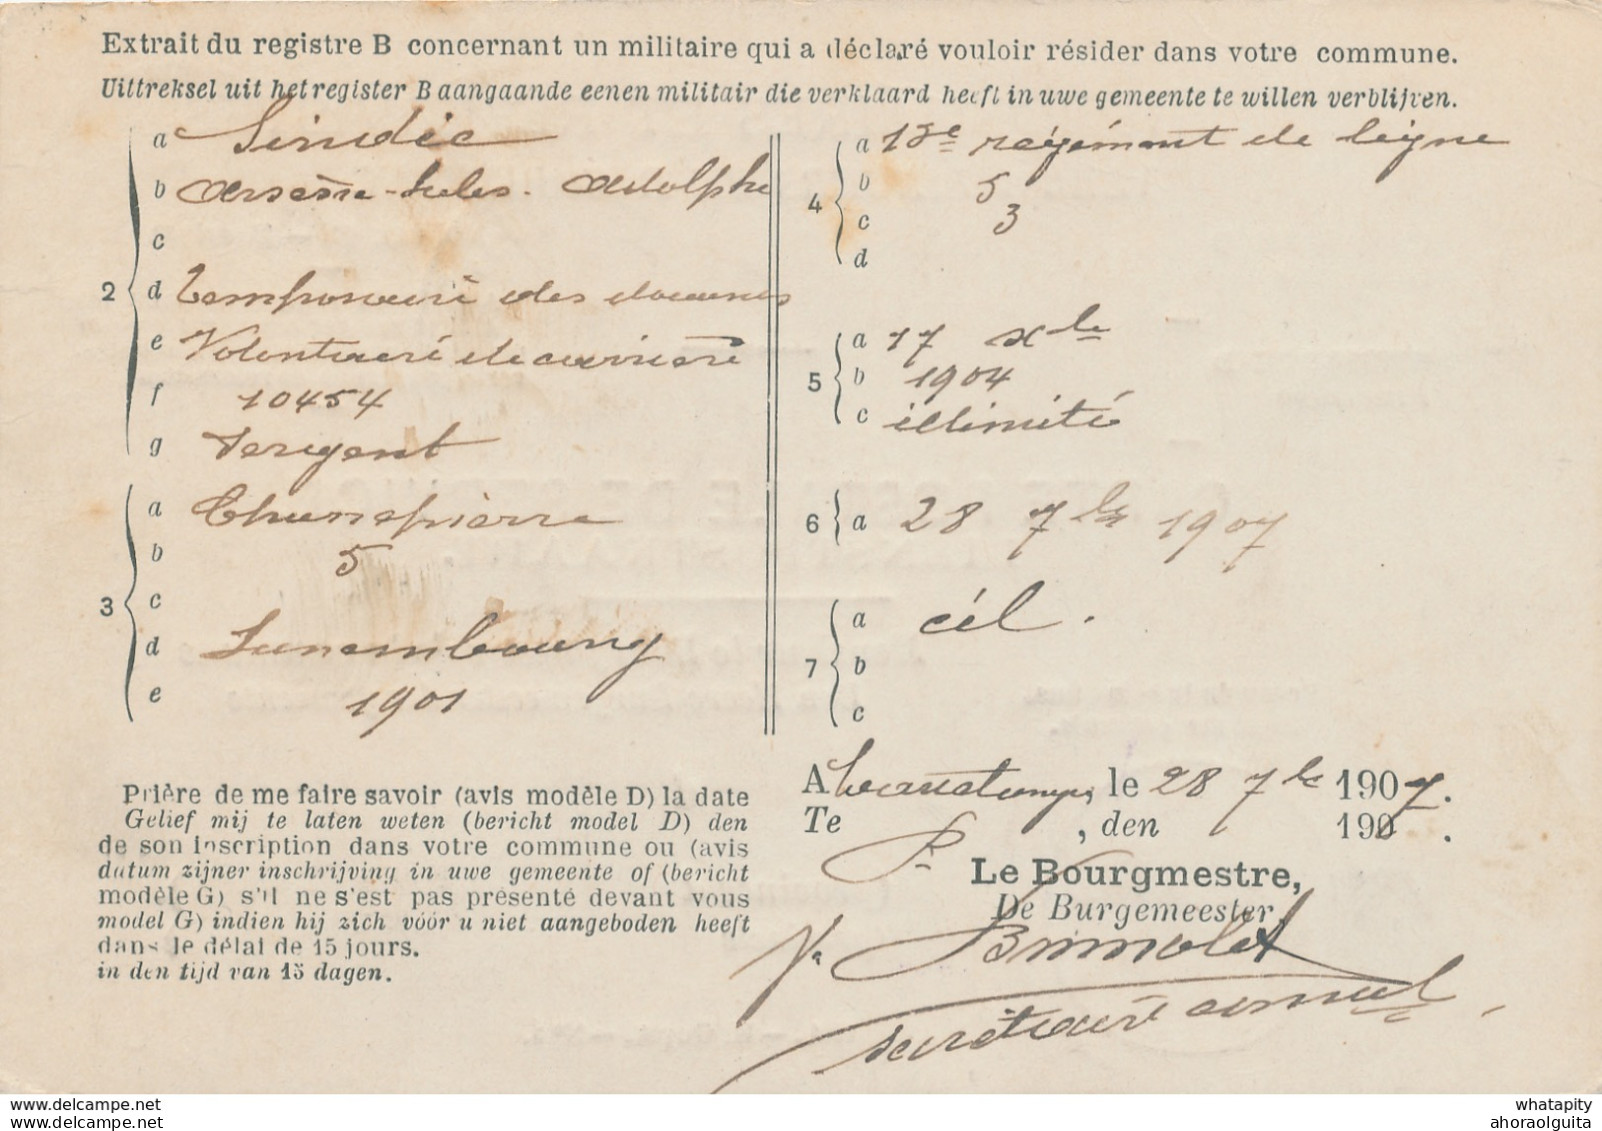 Extrait du registre B concernant un militaire qui a déclaré vouloir résider dans votre commune.
Uittreksel uit het register B aangaande eenen militair die verklaard heeft in uwe gemeente te willen verblijven.
2
a Sindic
b Arsène-Jules. Adolphe
c
d Temporaire des douanes
e Volontaire de carrière
f 10454
g Sergent
3
a
b 5
c
d Luxembourg
e 1901
4
a 13e régiment de ligne
b 5
c 3
d
5
a 17 xbre
b 1904
c illimité
6 a 28 7bre 1907
7
a cél.
b
c
Prière de me faire savoir (avis modèle D) la date
Gelief mij te laten weten (bericht model D) den
de son inscription dans votre commune ou (avis
datum zijner inschrijving in uwe gemeente of (bericht
modèle G) s'il ne s'est pas présenté devant vous
model G) indien hij zich vóór u niet aangeboden heeft
dans le délai de 15 jours.
in den tijd van 15 dagen.
A , le 28 7bre 1907.
Te , den 1907 .
Le Bourgmestre,
De Burgemeester,
secrétaire communal
whatapity
ahoraolguita